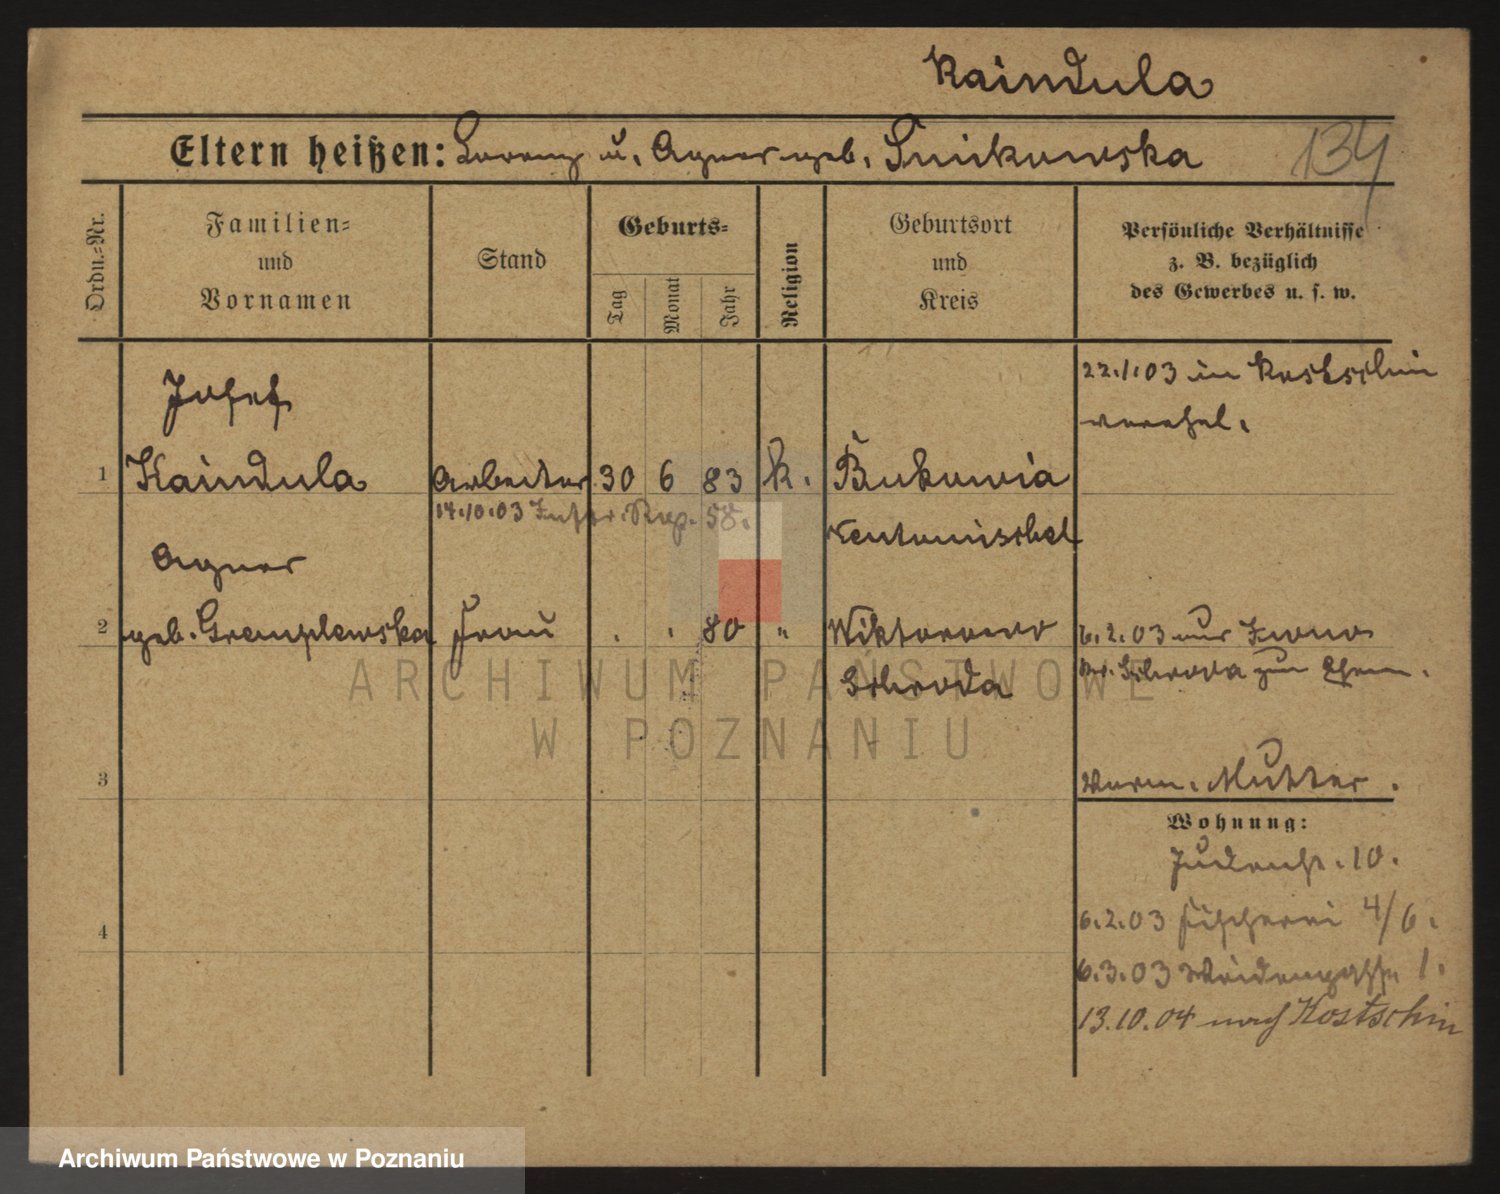 Kaindula
Eltern heißen: Lorenz u. Agnes geb. Snikowska
134
Ordn.-Nr.
Familien-
und
Vornamen
Stand
Geburts-
Tag
Monat
Jahr
Religion
Geburtsort
und
Kreis
Persönliche Verhältnisse
z. B. bezüglich
des Gewerbes u. s. w.
Josef
22.1.03 in Kostschin
verehel.
1 Kaindula Arbeiter 30 6 83 k. Bukowia
14.10.03 58.
Neutomischel
Agnes
2 geb. Gremplewska Frau . . 80 " Wiktorowo
Schroda
6.2.03 aus
Kr. Schroda zum Ehem.
3
Vorm. Mutter.
Wohnung:
Judenstr. 10.
4
6.2.03 Fischerei 4/6.
6.3.03 Weidengasse 1.
13.10.04 nach Kostschin
ARCHIWUM PAŃSTWOWE
W POZNANIU
Archiwum Państwowe w Poznaniu